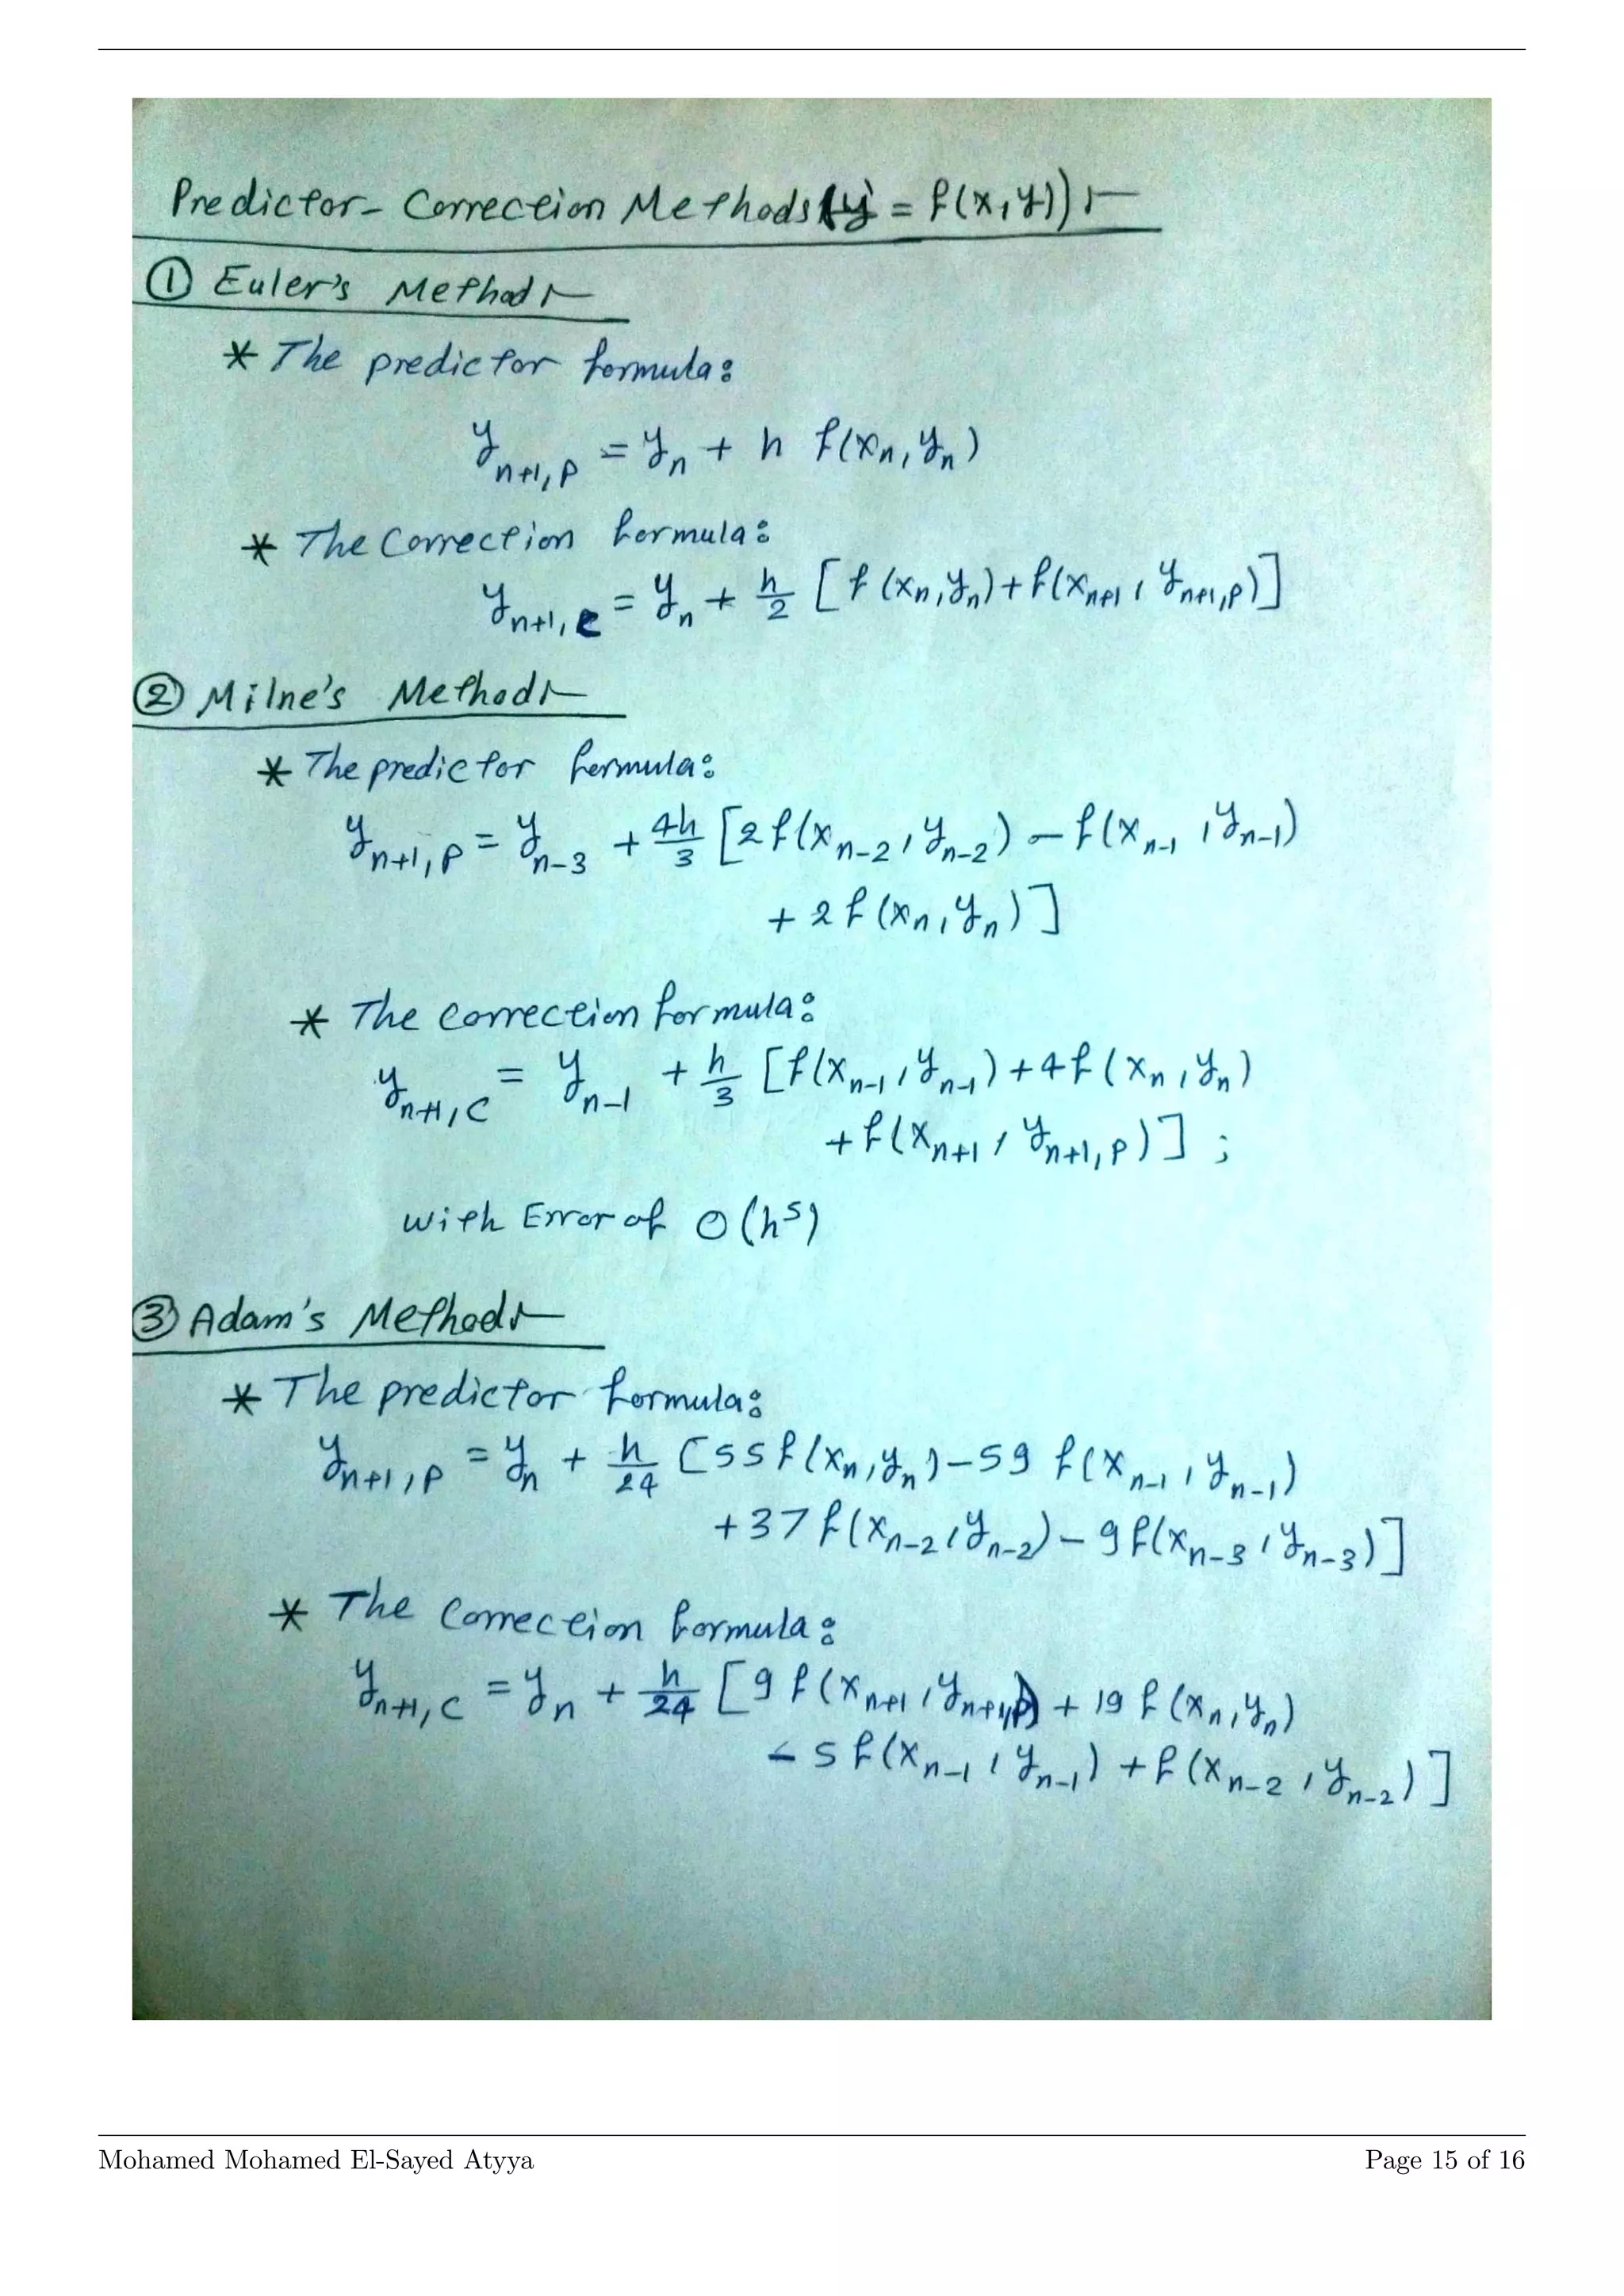 Predictor-Correction Methods (y' = f(x,y)) :-
① Euler's Method :-
* The predictor formula:
y_{n+1,p} = y_n + h f(x_n, y_n)
* The Correction formula:
y_{n+1,c} = y_n + h/2 [f(x_n, y_n) + f(x_{n+1}, y_{n+1,p})]
② Milne's Method :-
* The predictor formula:
y_{n+1,p} = y_{n-3} + 4h/3 [2f(x_{n-2}, y_{n-2}) - f(x_{n-1}, y_{n-1})
+ 2f(x_n, y_n)]
* The correction formula:
y_{n+1,c} = y_{n-1} + h/3 [f(x_{n-1}, y_{n-1}) + 4f(x_n, y_n)
+ f(x_{n+1}, y_{n+1,p})] ;
with Error of O(h^5)
③ Adam's Method :-
* The predictor formula:
y_{n+1,p} = y_n + h/24 [55f(x_n, y_n) - 59 f(x_{n-1}, y_{n-1})
+ 37 f(x_{n-2}, y_{n-2}) - 9f(x_{n-3}, y_{n-3})]
* The Correction formula:
y_{n+1,c} = y_n + h/24 [9f(x_{n+1}, y_{n+1,p}) + 19 f(x_n, y_n)
- 5f(x_{n-1}, y_{n-1}) + f(x_{n-2}, y_{n-2})]
Mohamed Mohamed El-Sayed Atyya Page 15 of 16